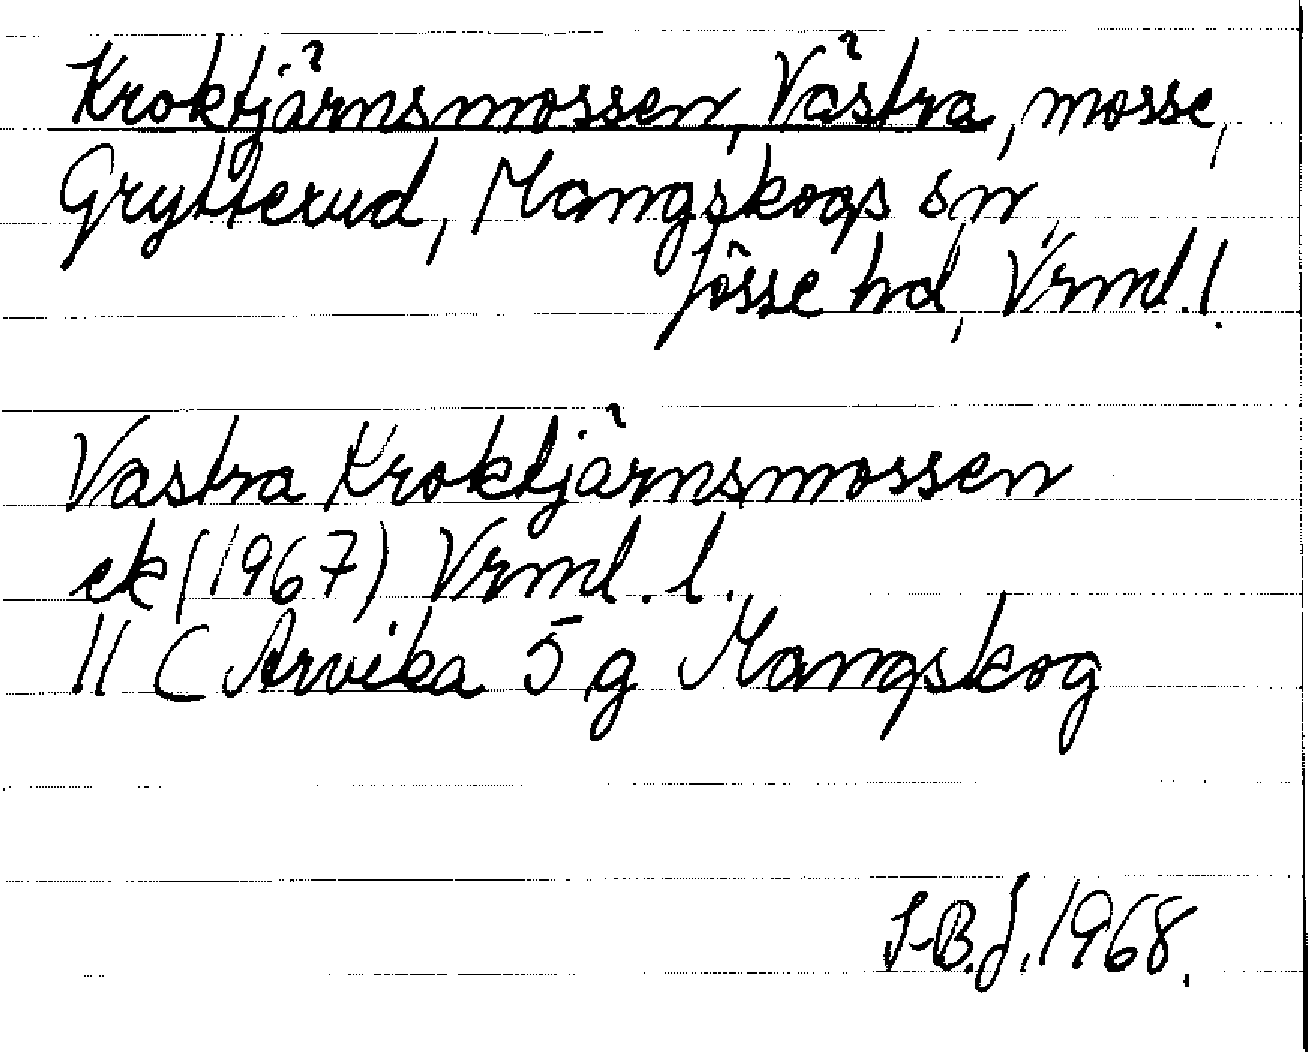 Kroktjärnsmossen, Västra, mosse,
Grytterud, Mangskogs sn,
Jösse hd, Vrml. l.
Västra Kroktjärnsmossen
ek (1967) Vrml. l.
11 C Arvika 5 g Mangskog
S-B.J. 1968.